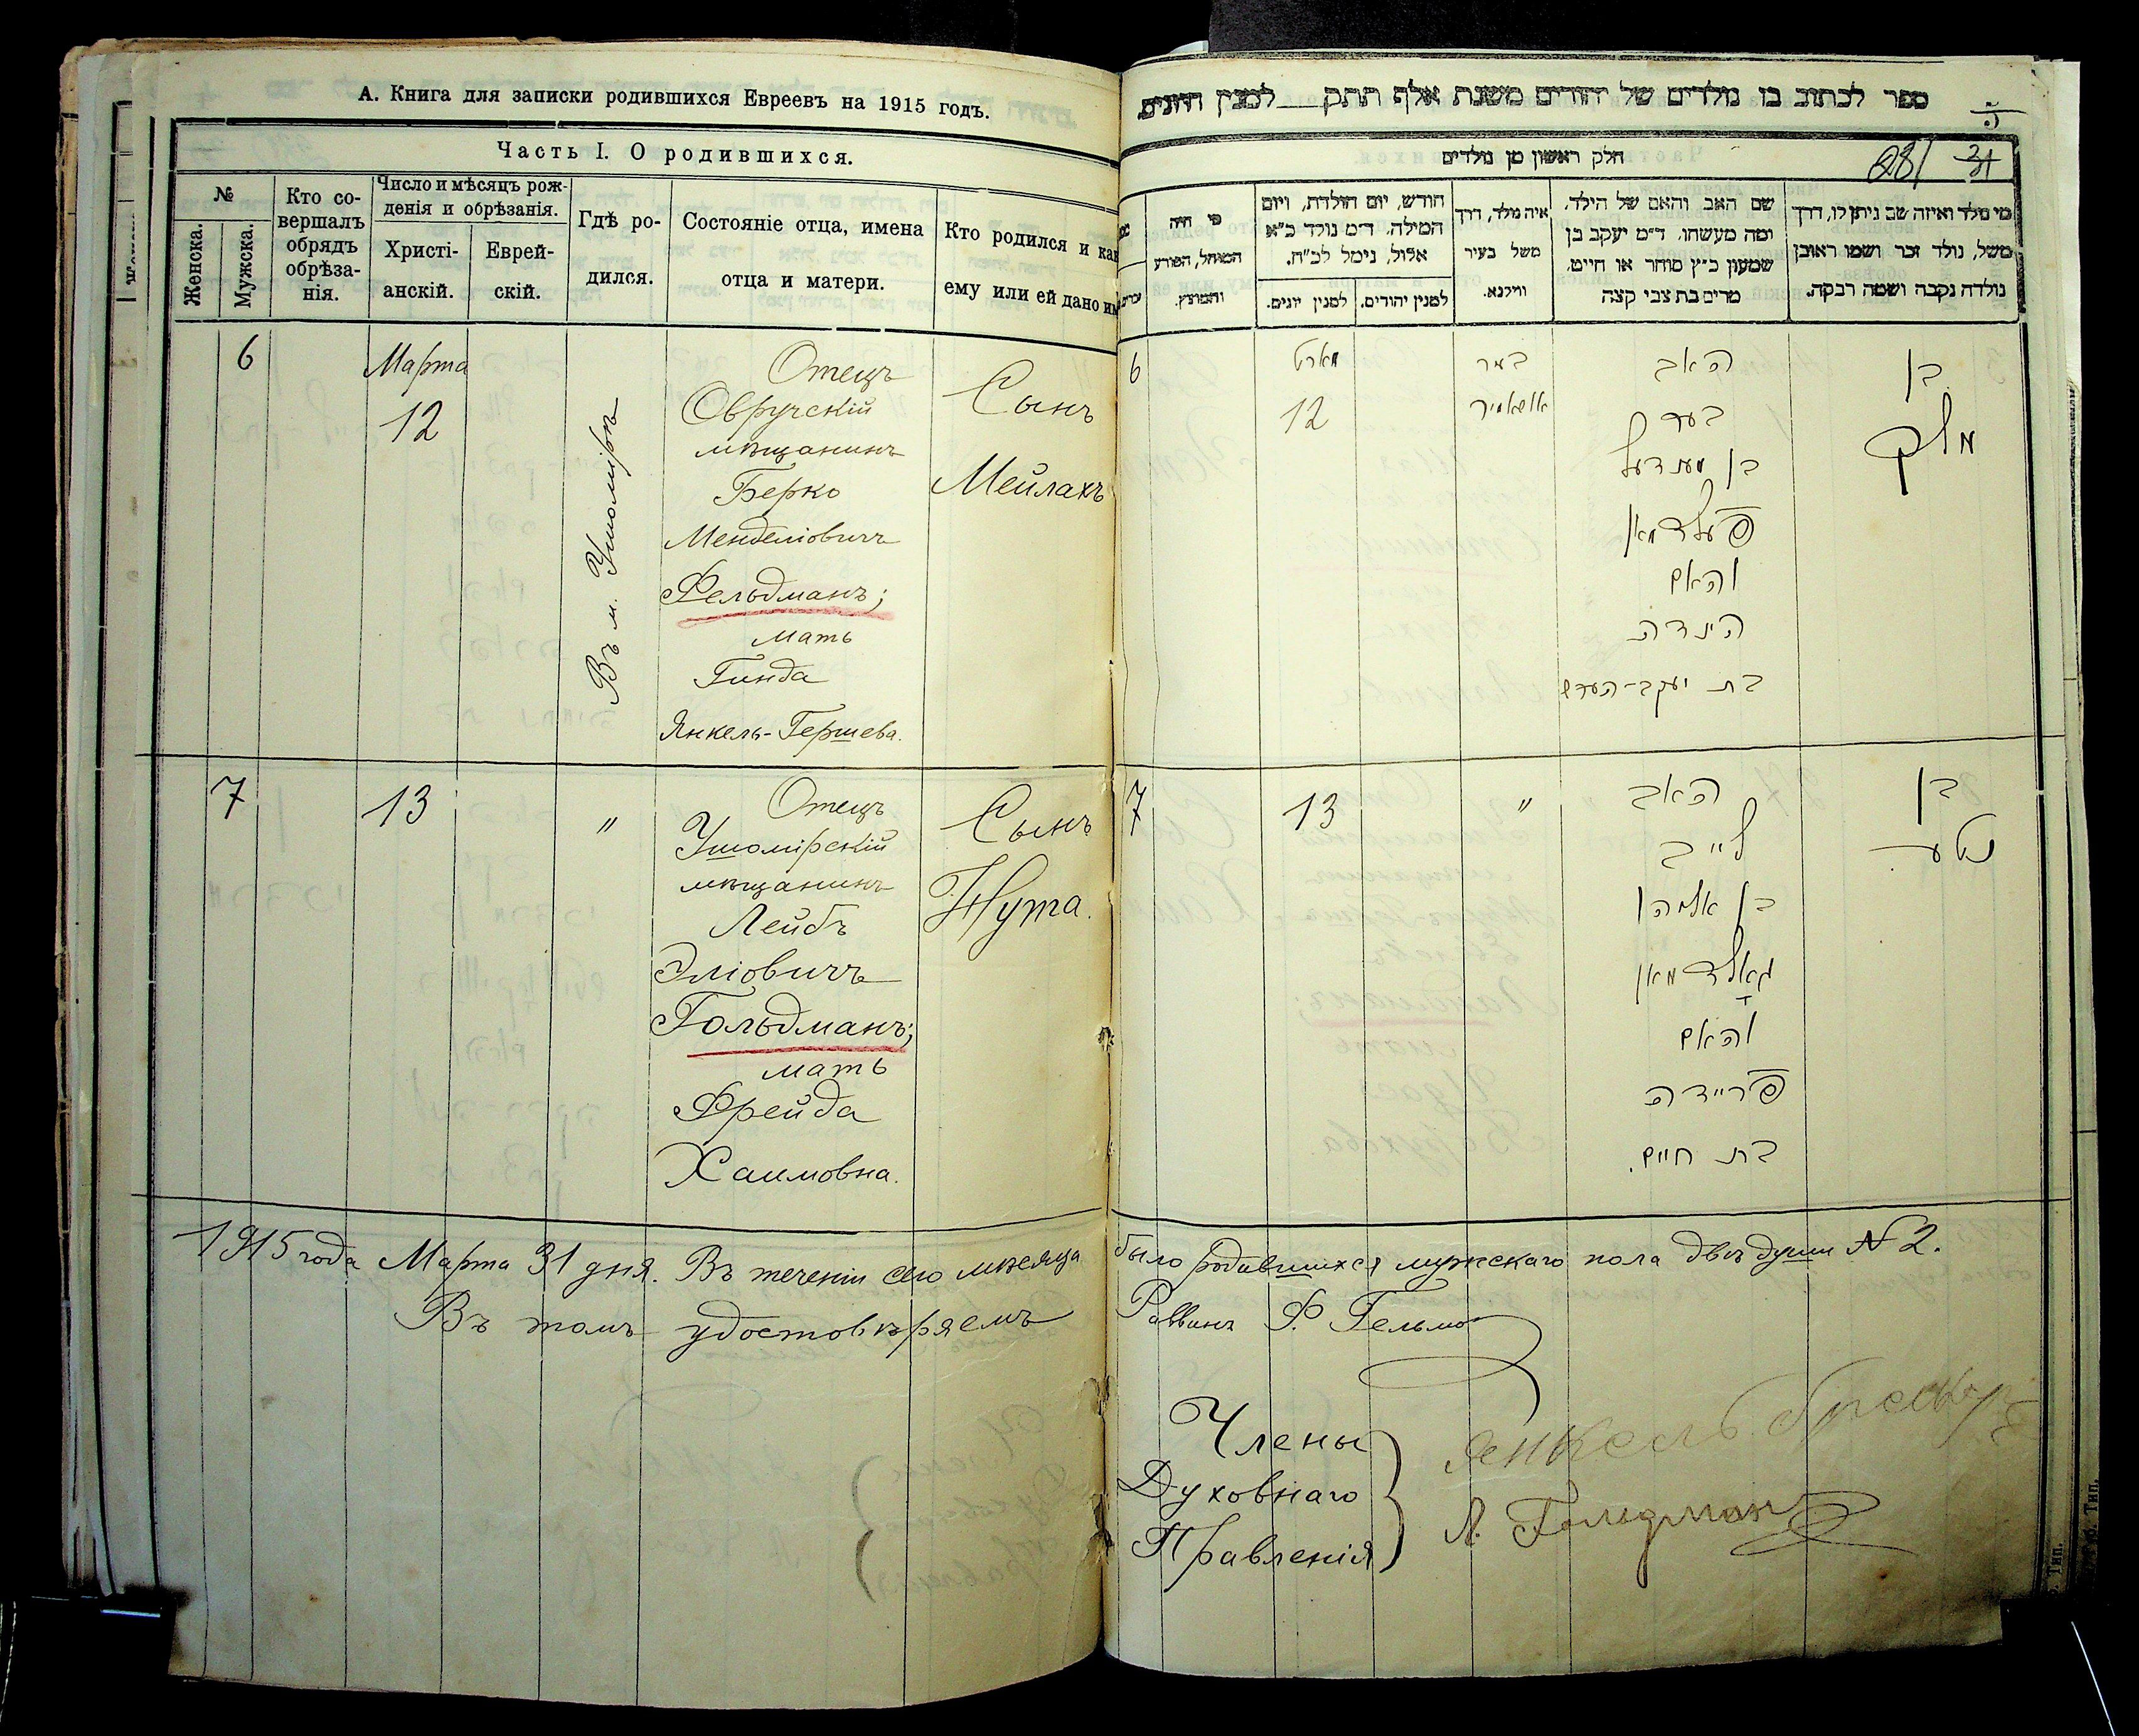 А. Книга для записки родившихся Евреевъ на 1915 годъ.
Часть I. О родившихся.
№
Женска.
Мужска.
Кто со-
вершалъ
обрядъ
обрѣза-
нія.
Число и мѣсяцъ рож-
денія и обрѣзанія.
Христі-
анскій.
Еврей-
скій.
Гдѣ ро-
дился.
Состояніе отца, имена
отца и матери.
Кто родился и как
ему или ей дано им
6
Марта
12
Въ м. Ушомірѣ
Отецъ
Овручскій
мѣщанинъ
Берко
Менделіовичъ
Фельдманъ;
мать
Гинда
Янкель-Гершева.
Сынъ
Мейлахъ
7
13
"
Отецъ
Ушомірскій
мѣщанинъ
Лейбъ
Эліовичъ
Гольдманъ;
мать
Фрейда
Хаимовна.
Сынъ
Нута.
1915 года Марта 31 дня. Въ теченіи сего мѣсяца
Въ томъ удостовѣряемъ
ספר לכתוב בו נולדים של יהודים משנת אלף תתק למנין היונים
חלק ראשון מן נולדים
281
מי נולד ואיזה שם ניתן לו, דרך
משל, נולד זכר ושמו ראובן
נולדה נקבה ושמה רבקה.
שם האב והאם של הילד,
ומה מעשהו. ד״מ יעקב בן
שמעון כ״ץ סוחר או חייט,
מרים בת צבי קצה
איה נולד, דרך
משל בעיר
ווילנא.
חודש, יום הולדת, ויום
המילה. ד״מ נולד כ״א
אלול, נימל לכ״ח.
למנין יהודים.
למנין יונים.
מי היה
המוהל, הפורע
והמוצץ.
בן
מלך
האב
בער
בן מענדעל
פעלדמאן
והאם
הינדה
בת יעקב-הערש
במר
אושאמיר
מארט
12
6
בן
נטע
האב
לייב
בן אליהו
גאלדמאן
והאם
פריידה
בת חיים.
"
13
7
было родившихся мужскаго пола двѣ души № 2.
Раввинъ Ф. Гельма
Члены
Духовнаго
Правленія
Янкель
Л. Голдман